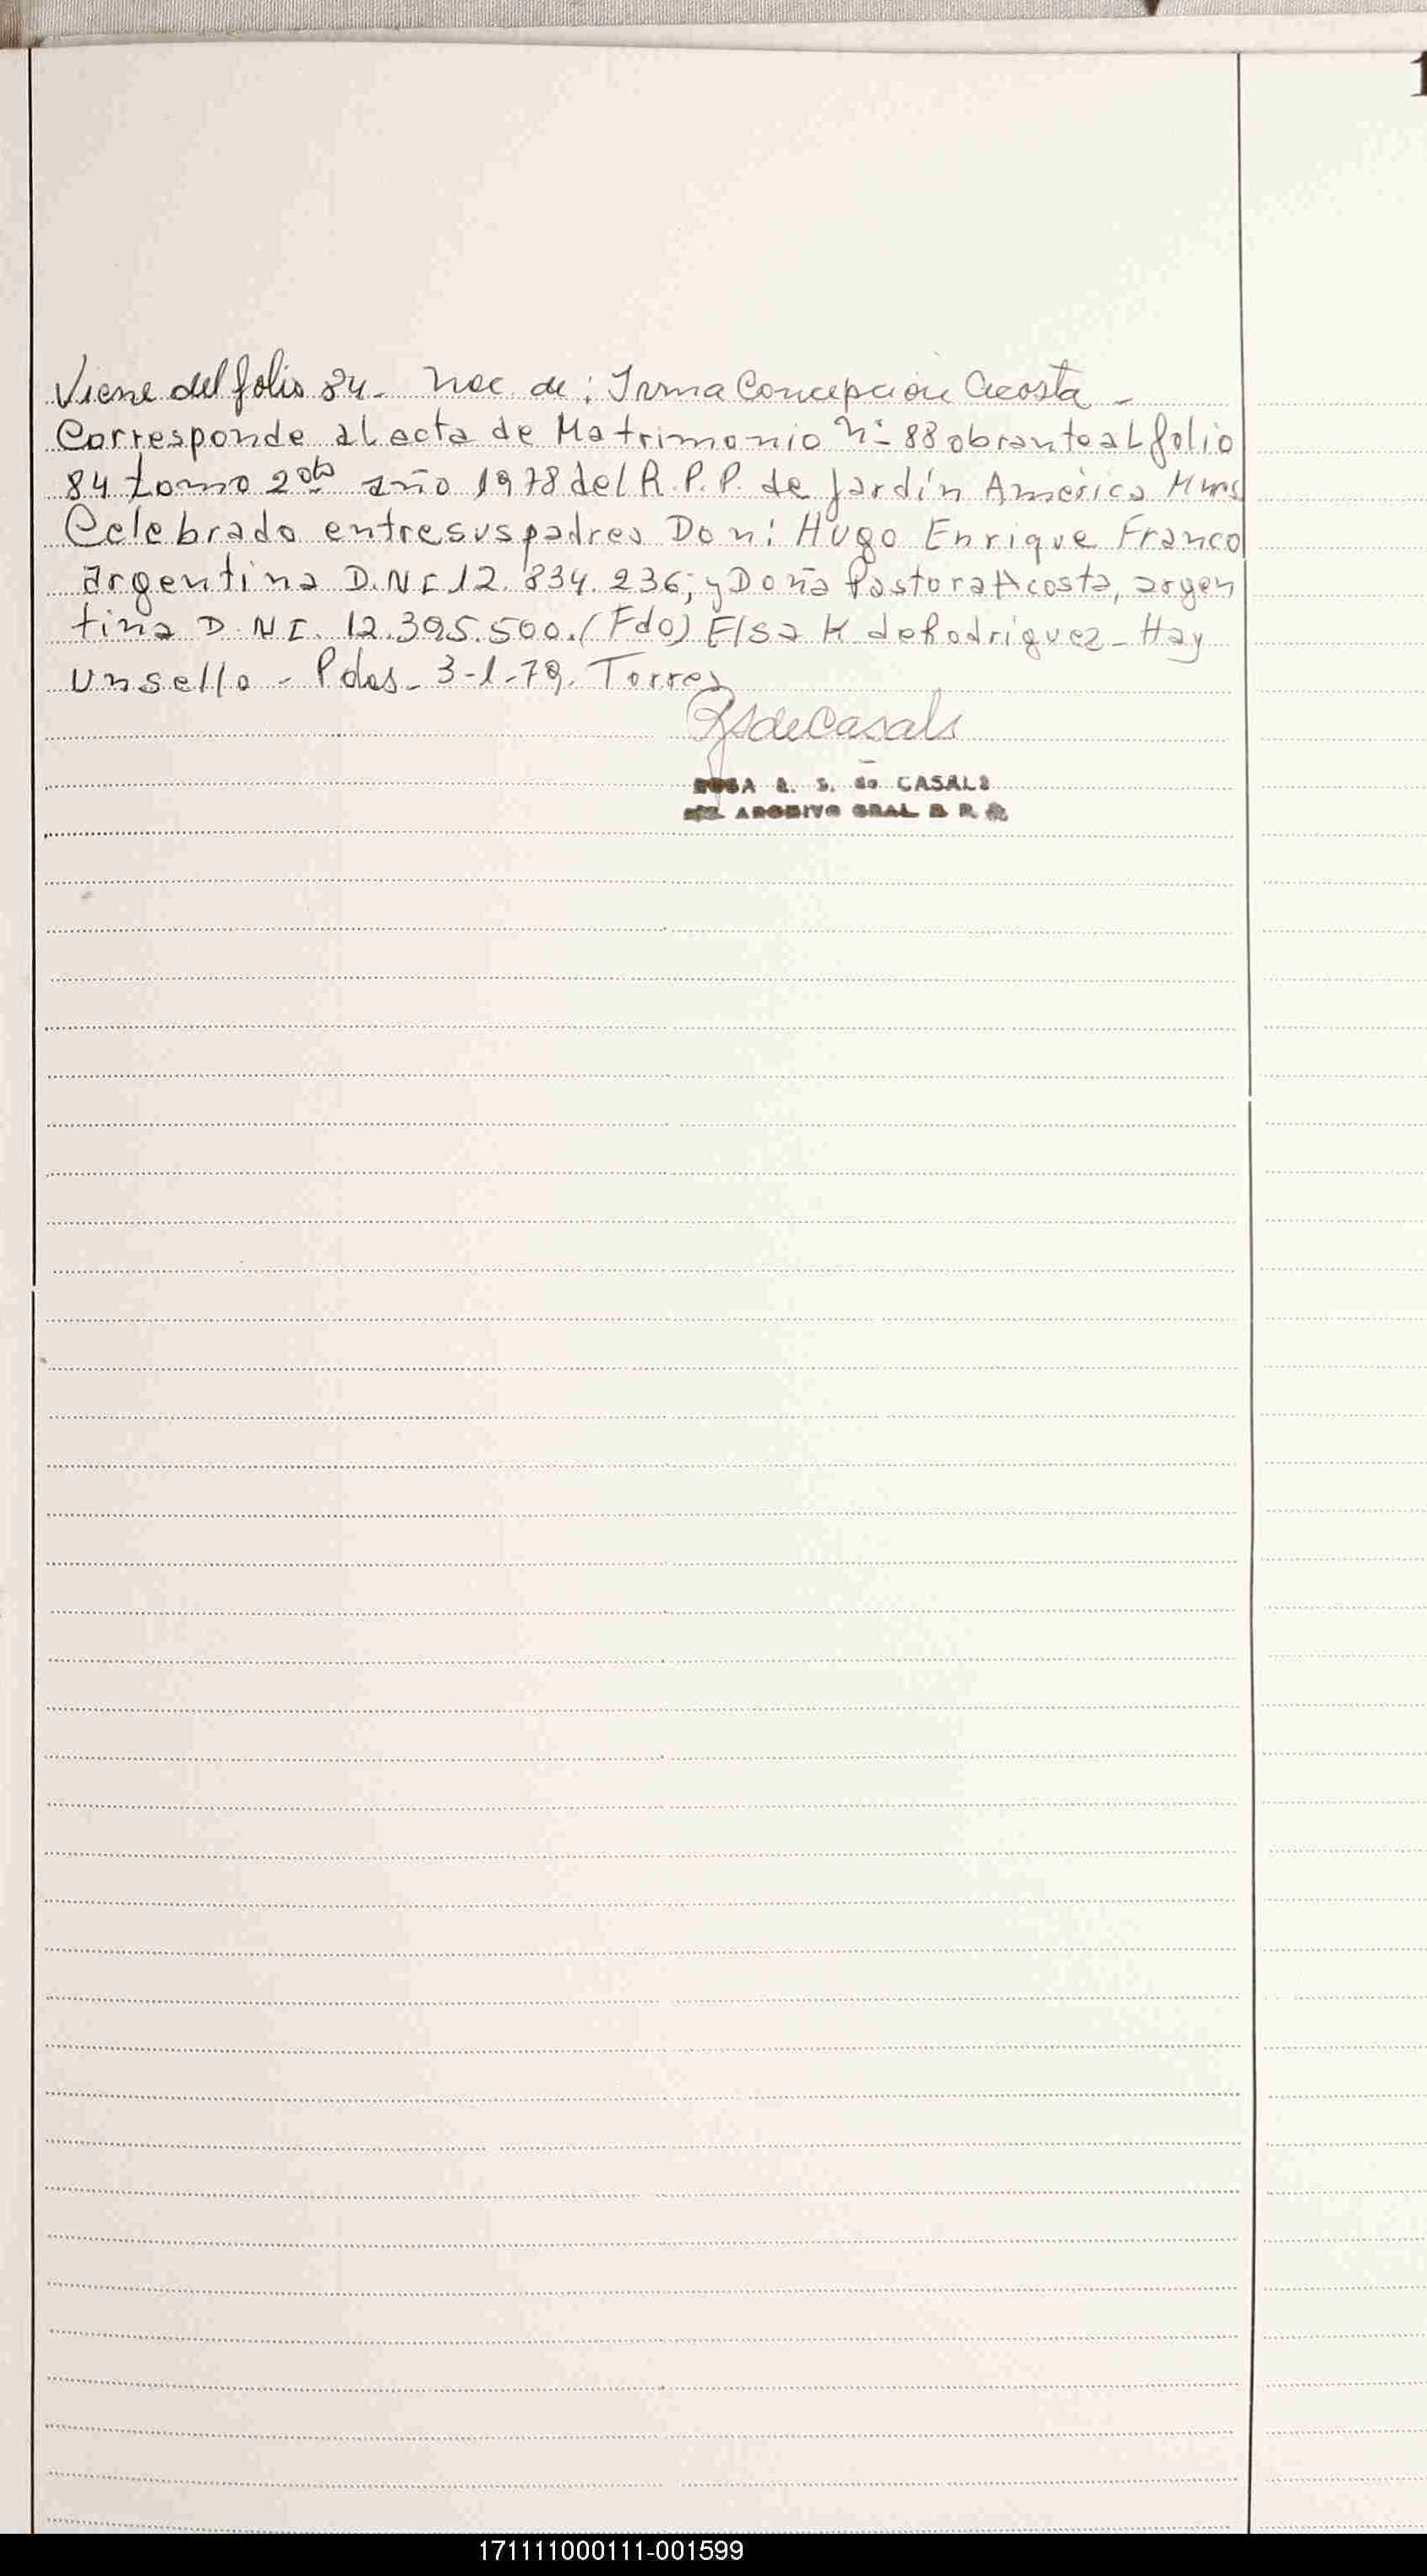 1
Viene del folio 84. Nac. de: Irma Concepción Acosta -
Corresponde al acta de Matrimonio Nº 88 obrante al folio
84 tomo 2do año 1978 del R.P.P. de Jardín América Mnes
Celebrado entre sus padres Don: Hugo Enrique Franco
argentina D.N.I 12.834.236; y Doña Pastora Acosta, argen
tina D.N.I. 12.395.500. (Fdo) Elsa K de Rodriguez - Hay
un sello - Pdas. 3-1-79. Torres
RSdeCasals
ROSA E. S. de CASALS
ARCHIVO GRAL R. P.
171111000111-001599